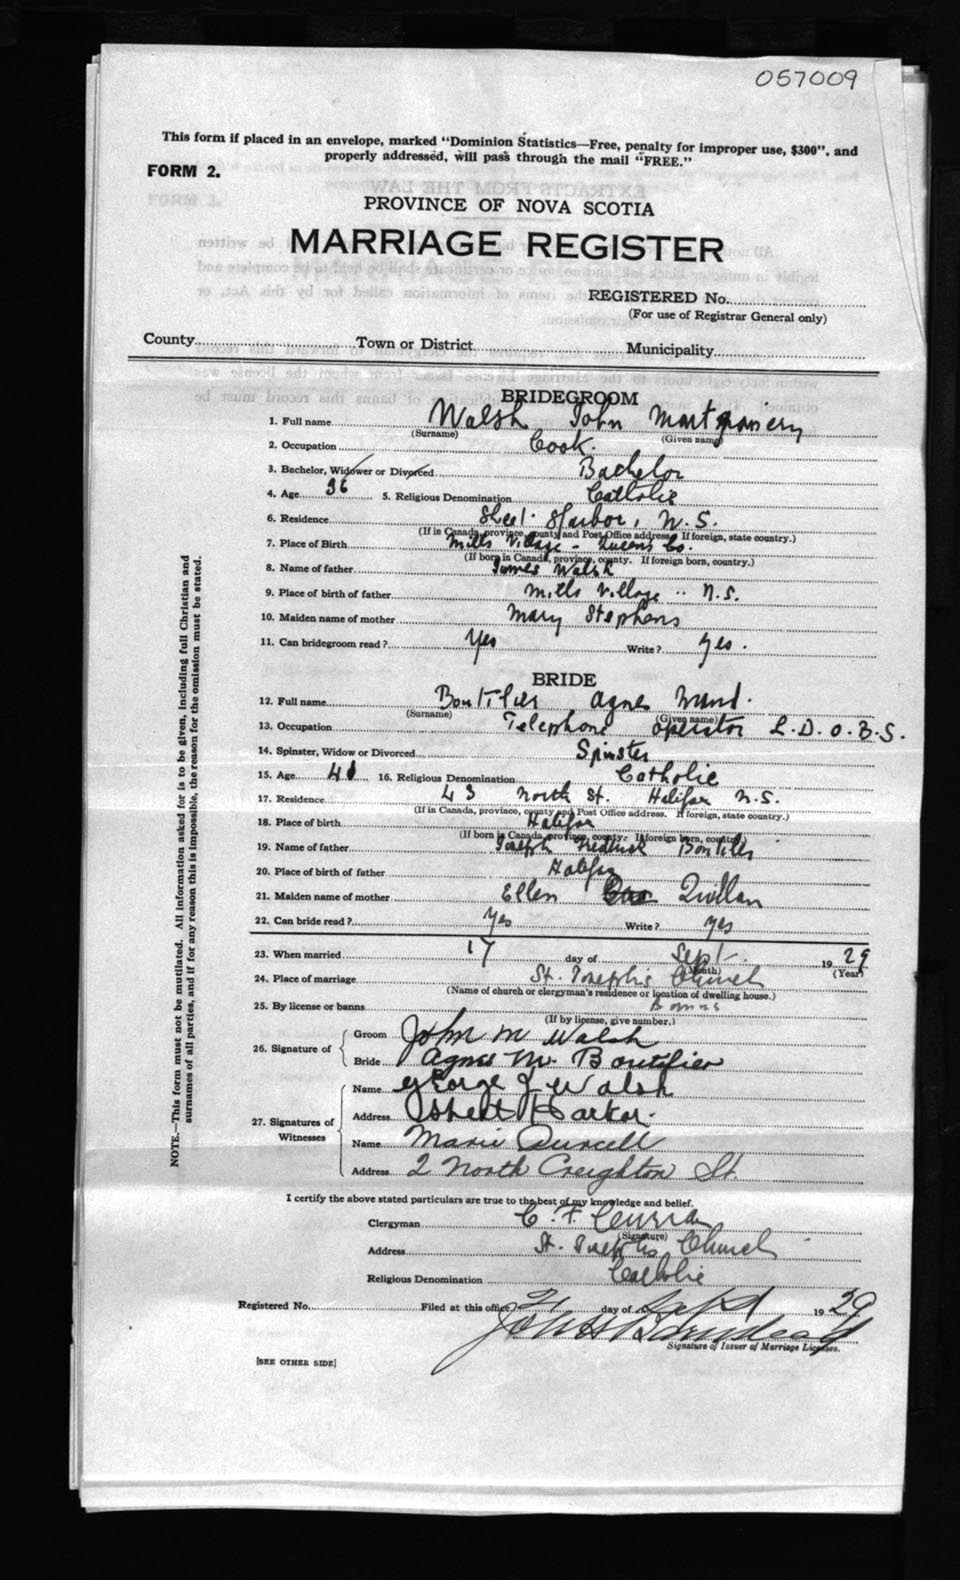 057009
This form if placed in an envelope, marked "Dominion Statistics—Free, penalty for improper use, $300", and
properly addressed, will pass through the mail "FREE."
FORM 2.
PROVINCE OF NOVA SCOTIA
MARRIAGE REGISTER
REGISTERED No.
(For use of Registrar General only)
County Town or District Municipality
BRIDEGROOM
1. Full name Walsh John Montgomery
(Surname) (Given name)
2. Occupation Cook.
3. Bachelor, Widower or Divorced Bachelor
4. Age 36 5. Religious Denomination Catholic
6. Residence Sheet Harbor, N.S.
(If in Canada, province, county and Post Office address. If foreign, state country.)
7. Place of Birth Mills Village - Queens Co.
(If born in Canada, province, county. If foreign born, country.)
8. Name of father James Walsh
9. Place of birth of father Mills Village N.S.
10. Maiden name of mother Mary Stephens
11. Can bridegroom read? Yes Write? Yes.
BRIDE
12. Full name Boutilier Agnes Maud.
(Surname) (Given name)
13. Occupation Telephone operator L.D.O.B.S.
14. Spinster, Widow or Divorced Spinster
15. Age 41 16. Religious Denomination Catholic
17. Residence 43 North St. Halifax N.S.
(If in Canada, province, county and Post Office address. If foreign, state country.)
18. Place of birth Halifax
(If born in Canada, province, county. If foreign born, country.)
19. Name of father Joseph Frederick Boutilier
20. Place of birth of father Halifax
21. Maiden name of mother Ellen Quillan
22. Can bride read? Yes Write? Yes
23. When married 17 day of Sept. 1929
(Month) (Year)
24. Place of marriage St. Joseph's Church
(Name of church or clergyman's residence or location of dwelling house.)
25. By license or banns Banns
(If by license, give number.)
26. Signature of
Groom John M Walsh
Bride Agnes M. Boutilier
27. Signatures of Witnesses
Name George J Walsh
Address Sheet Harbor.
Name Marie Purcell
Address 2 North Creighton St.
I certify the above stated particulars are true to the best of my knowledge and belief.
Clergyman C. F. Curran
(Signature)
Address St. Joseph's Church
Religious Denomination Catholic
Registered No. Filed at this office 21 day of Sept 1929
Signature of Issuer of Marriage Licenses.
[SEE OTHER SIDE]
NOTE.—This form must not be mutilated. All information asked for is to be given, including full Christian and
surnames of all parties, and if for any reason this is impossible, the reason for the omission must be stated.